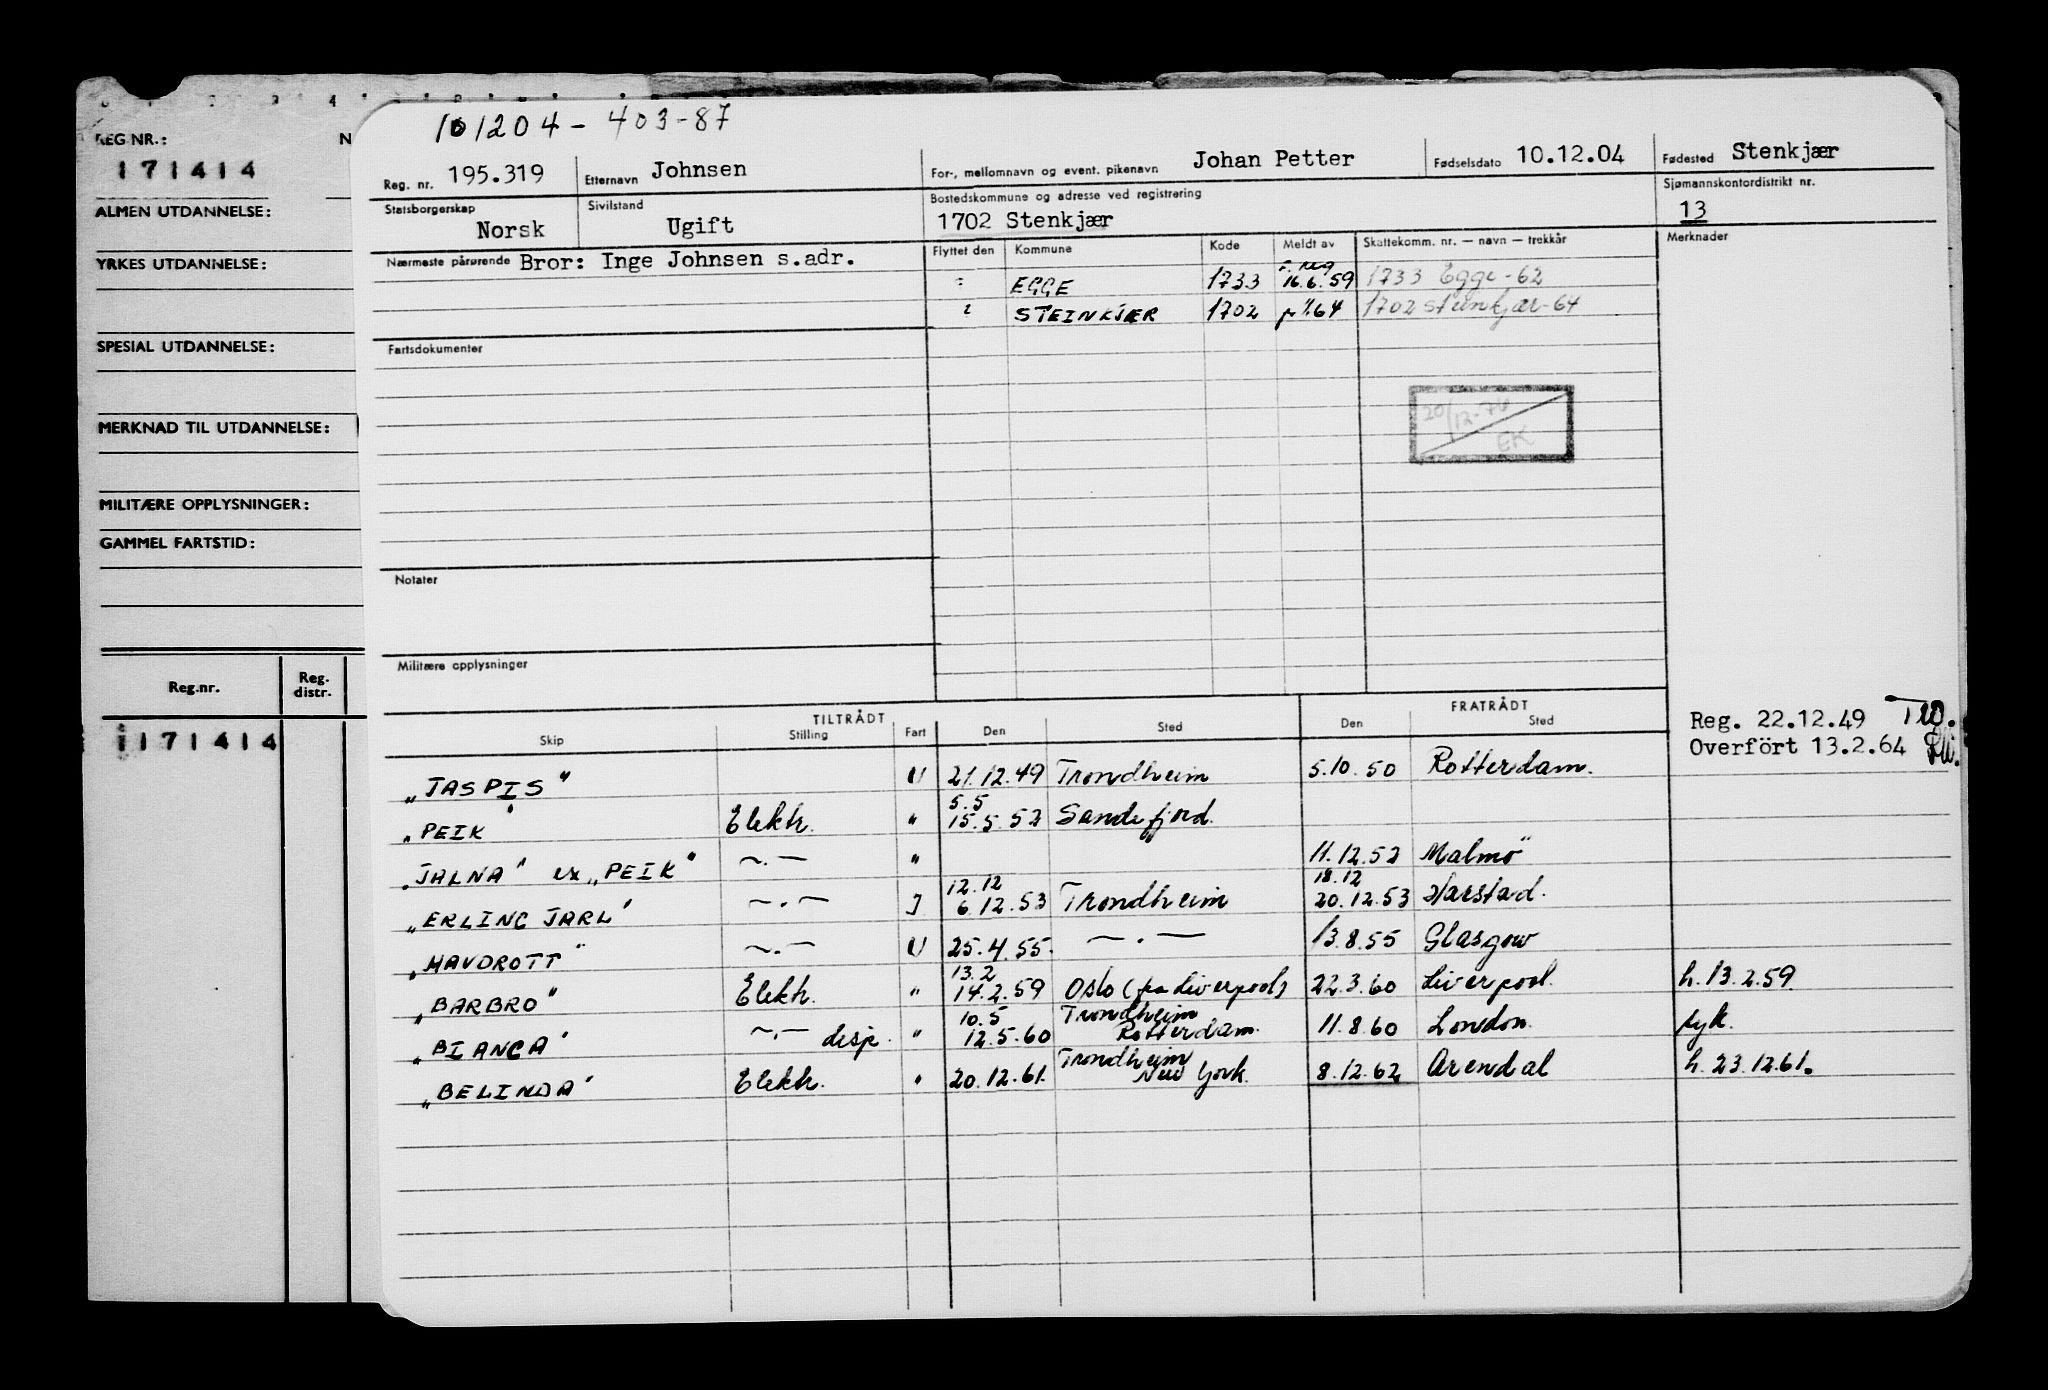 REG NR.:
N
171414
ALMEN UTDANNELSE:
YRKES UTDANNELSE:
SPESIAL UTDANNELSE:
MERKNAD TIL UTDANNELSE:
MILITÆRE OPPLYSNINGER:
GAMMEL FARTSTID:
Reg.nr. Reg. distr.
171414
101204 - 403-87
Reg. nr. 195.319 Etternavn Johnsen For-, mellomnavn og event. pikenavn Johan Petter Fødselsdato 10.12.04 Fødested Stenkjær
Statsborgerskap Norsk Sivilstand Ugift Bostedskommune og adresse ved registrering 1702 Stenkjær Sjømannskontordistrikt nr. 13
Nærmeste pårørende Bror: Inge Johnsen s.adr. Flyttet den Kommune Kode Meldt av Skattekomm. nr. — navn — trekkår Merknader
EGGE 1733 16.6.59 1733 Egge-62
STEINKJER 1702 64 1702 Steinkjær-64
Fartsdokumenter
20/12-76
EK
Notater
Militære opplysninger
TILTRÅDT FRATRÅDT
Skip Stilling Fart Den Sted Den Sted
Reg. 22.12.49
Overfört 13.2.64
"JASPIS" U 21.12.49 Trondheim 5.10.50 Rotterdam.
"PEIK" Elektr. " 5.5 15.5.52 Sandefjord.
"JALNA" ex "PEIK" —.— " 11.12.52 Malmö
"ERLING JARL" —.— J 12.12 6.12.53 Trondheim 18.12 20.12.53 Harstad.
"HAVDROTT" —.— U 25.4.55. —.— 13.8.55 Glasgow
"BARBRO" Elektr. " 13.2 14.2.59 Oslo (fra Liverpool) 22.3.60 Liverpool. h. 13.2.59
"BIANCA" —.— disp. " 10.5 12.5.60 Trondheim Rotterdam. 11.8.60 London. syk.
"BELINDA" Elektr. " 20.12.61. Trondheim New York. 8.12.62 Arendal h. 23.12.61.